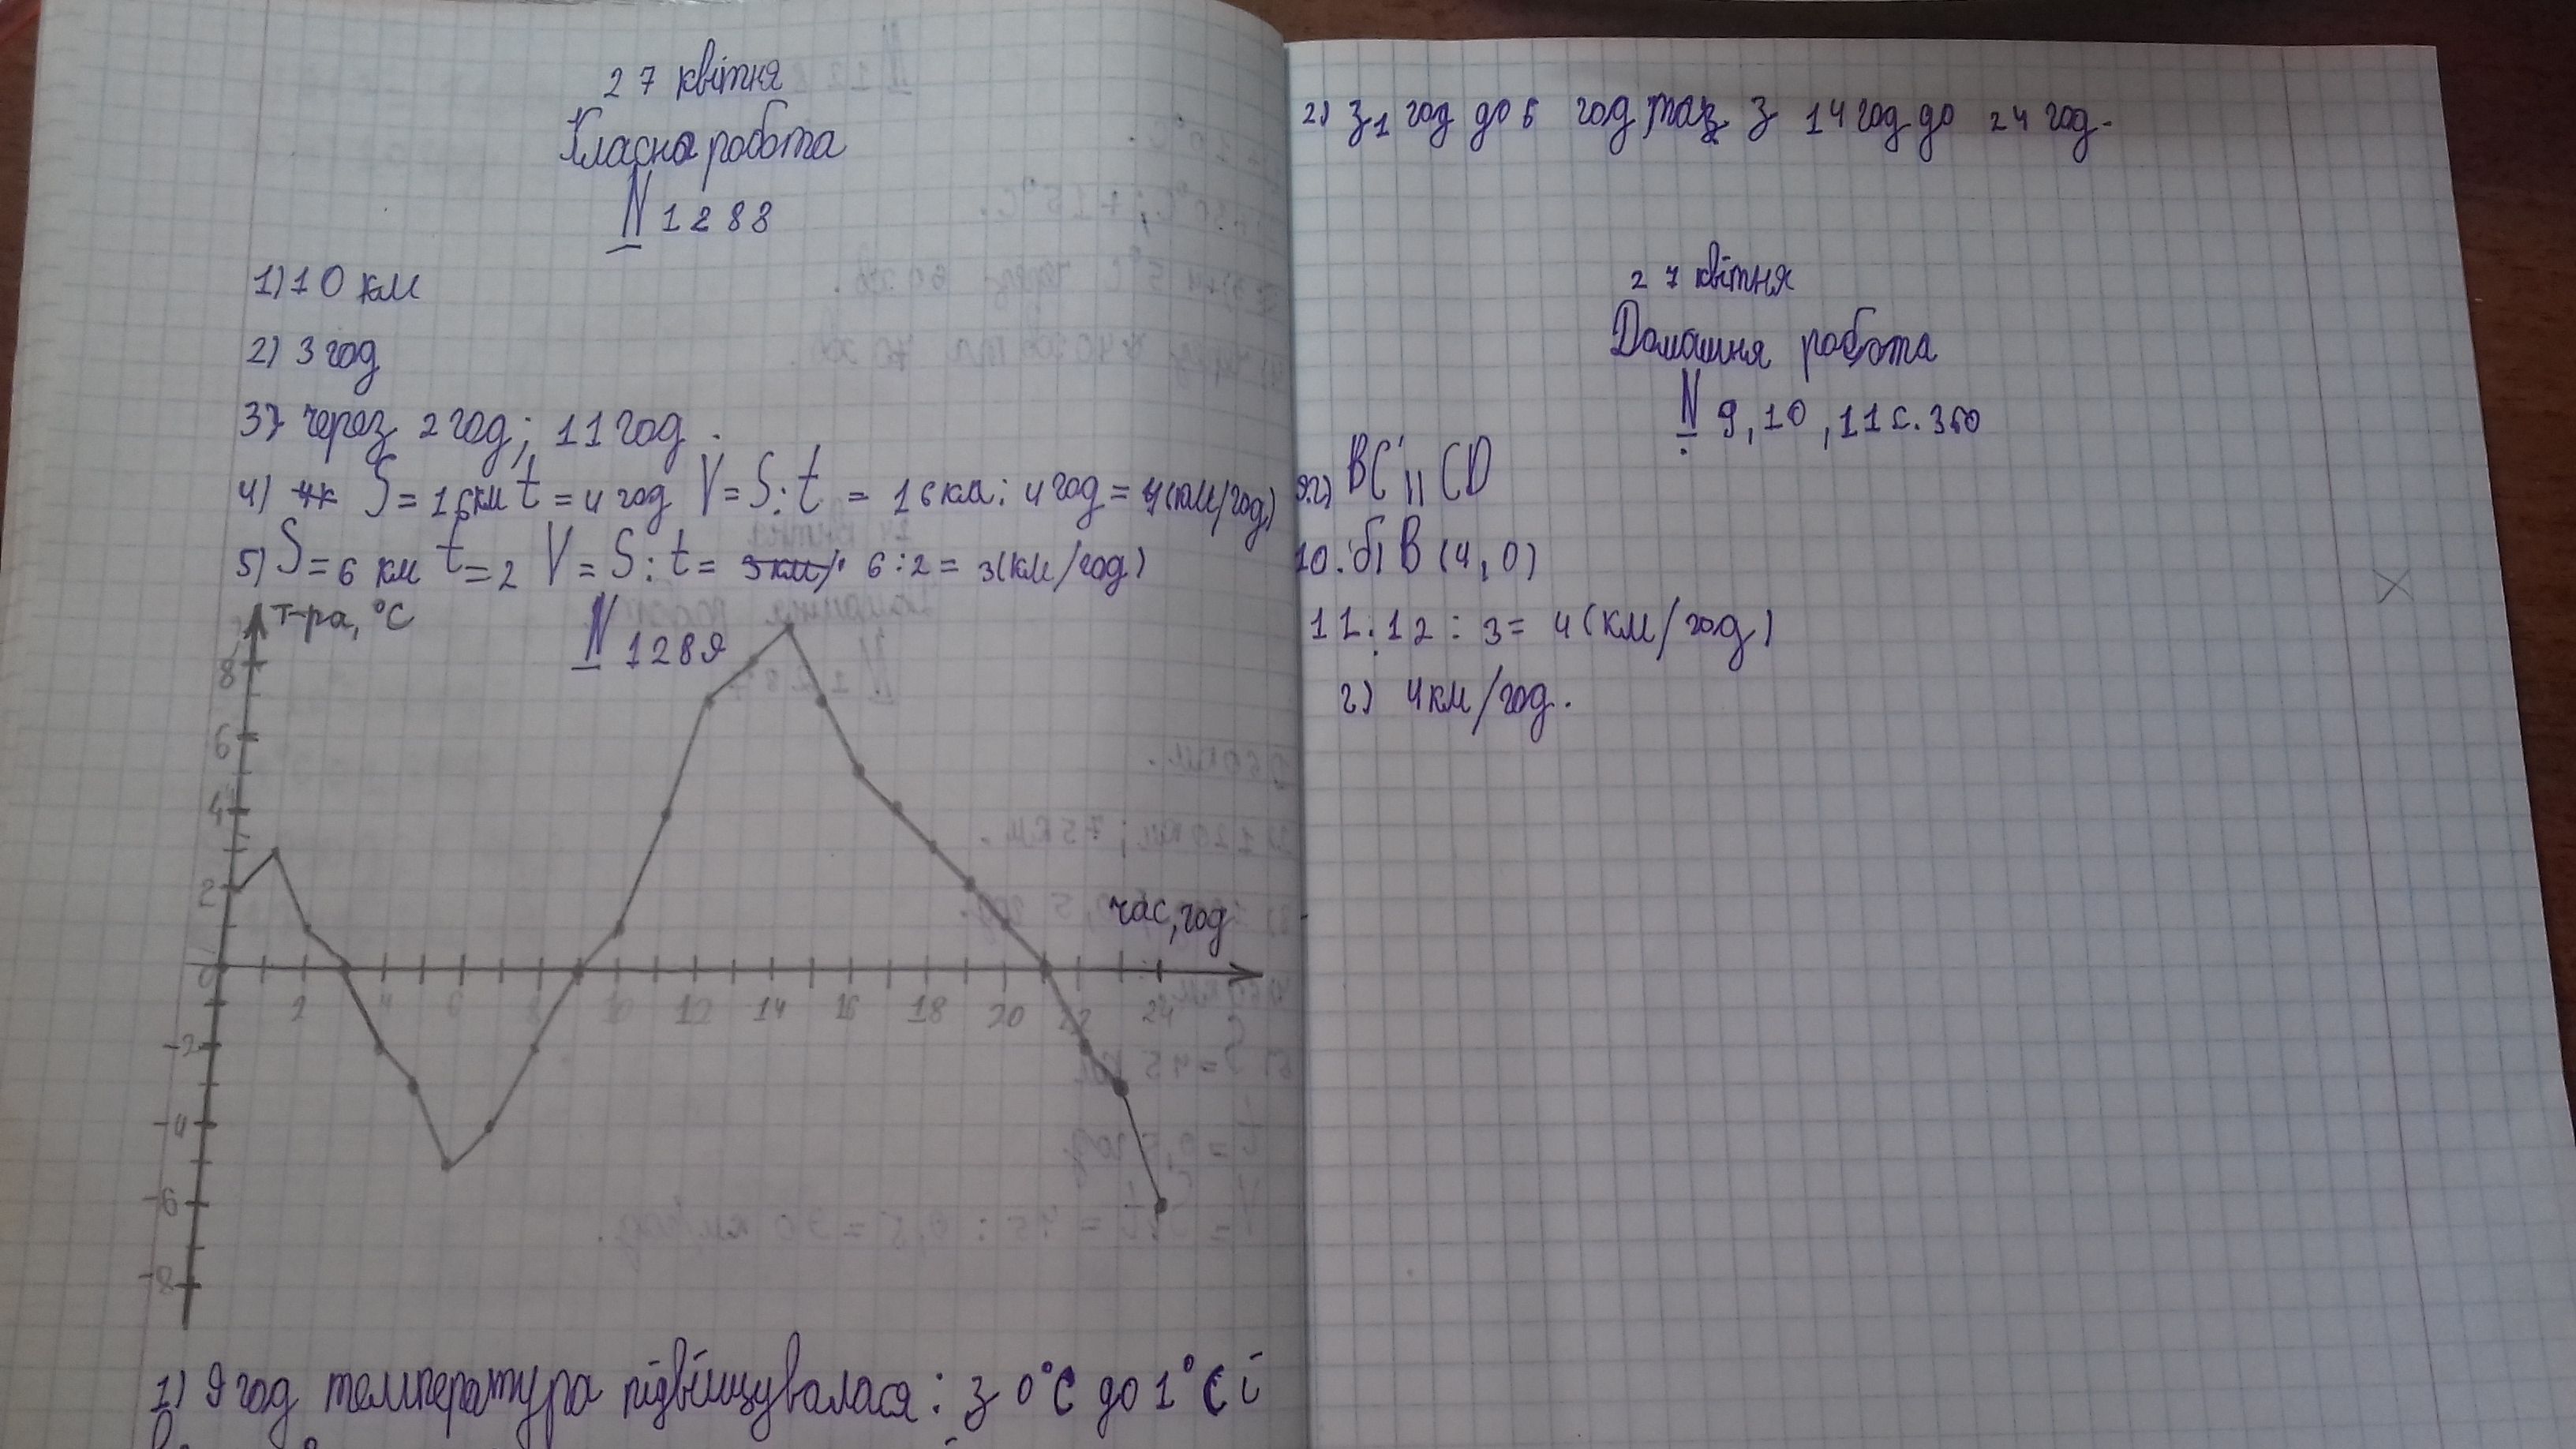 27 квітня
Класна робота
№ 1288
1) 10 км
2) 3 год
3) через 2 год; 11 год.
4) S = 16 км t = 4 год V = S : t = 16 км : 4 год = 4 (км/год)
5) S = 6 км t = 2 V = S : t = 6 : 2 = 3 (км/год)
т-ра, °C
№ 1289
8
6
4
2
час, год
0 2 4 6 8 10 12 14 16 18 20 22 24
-2
-4
-6
-8
1) 9 год температура підвіщувалася: з 0°C до 1°C і
2) З 1 год до 6 год з 14 год до 24 год.
27 квітня
Домашня робота
№ 9, 10, 11 с. 360
9. г) BC || CD
10. б) B (4, 0)
11. 12 : 3 = 4 (км/год)
г) 4 км/год.